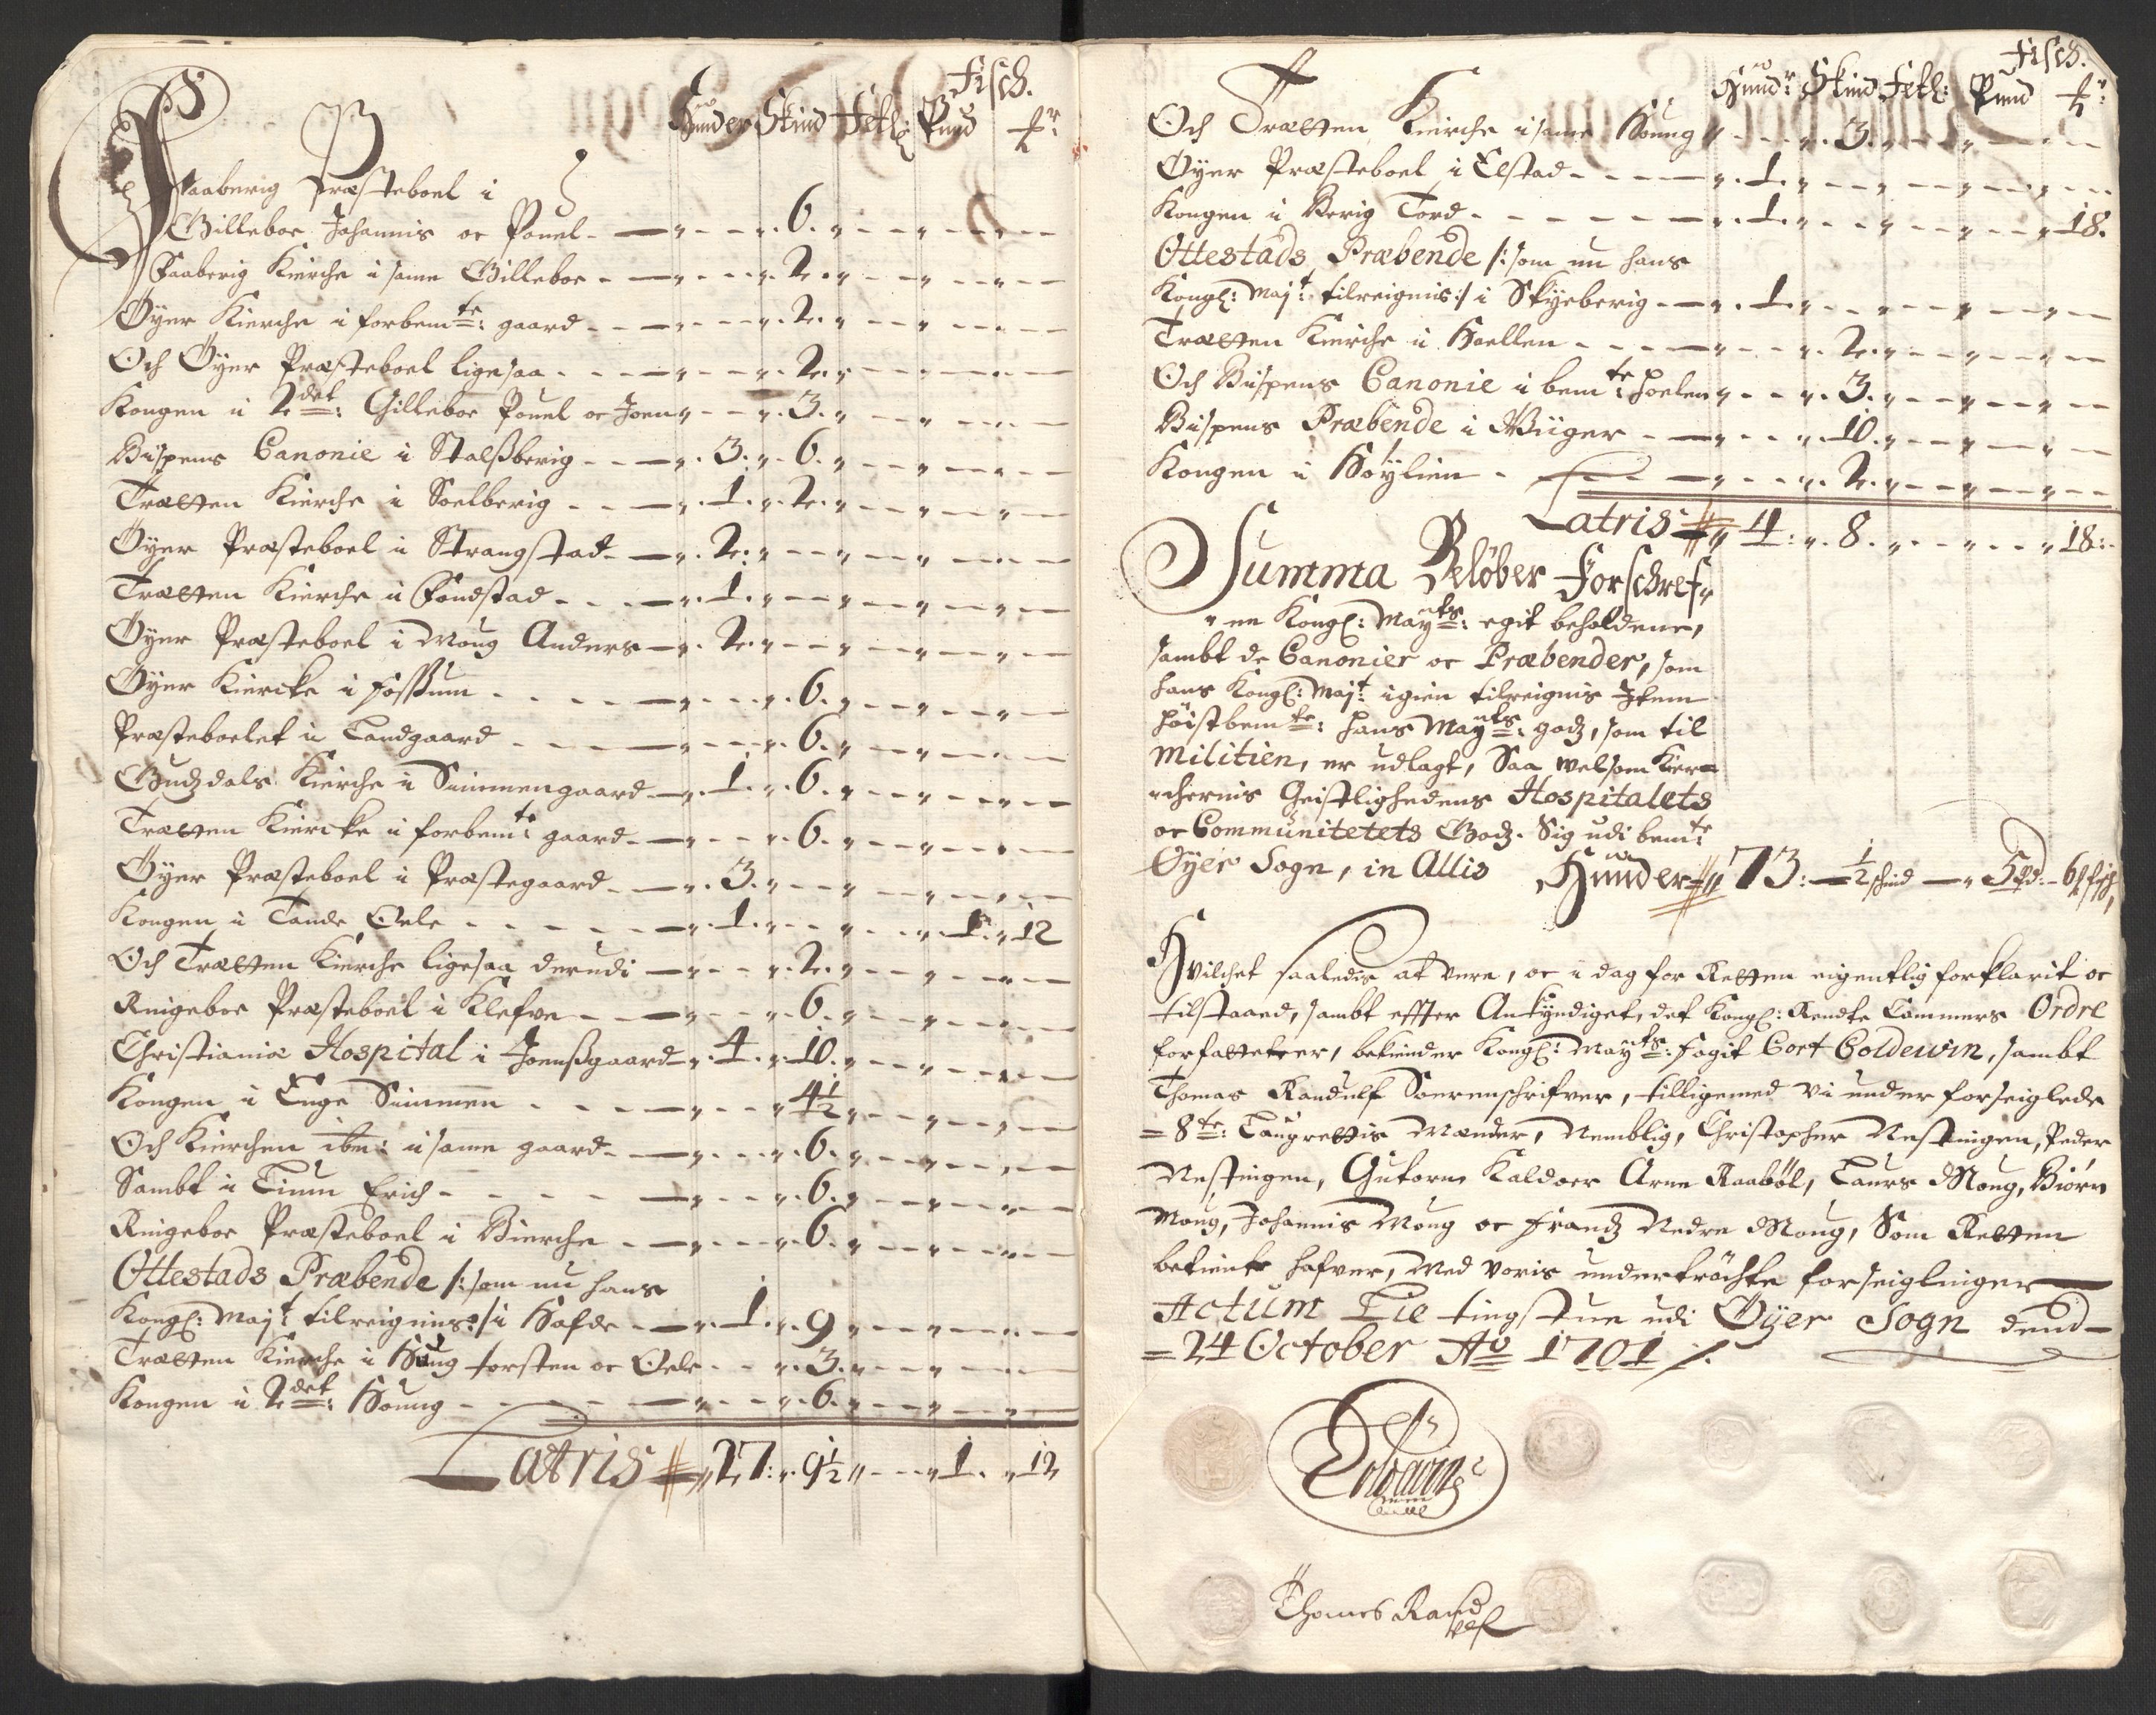 Fisch.
Hunder Skind Fetl: Pund
Faaberig Præsteboel i
Gilleboe Johannis oc Pouel - 6.
Faaberig Kierche i same Gilleboe - 2.
Öyer Kierche i forbemte: gaard - 2.
Och Öyer Præsteboel ligesaa - 2.
Kongen i 2det: Gilleboe Pouel oc Joen 3.
Bispens Canonie i Stalßberig - 3. 6.
Tretten Kierche i Soelberig - 1. 2.
Öyer Præsteboel i Strangstad - 2.
Tretten Kierche i Fonstad - 1.
Öyer Præsteboel i Moug Anders - 2.
Öyer Kiercke i Foßum - 6.
Præsteboelet i Landgaard - 6.
Gudzdals Kierche i Simmengaard - 1. 6.
Tretten Kiercke i forbemte gaard - 6.
Öyer Præsteboel i Præstegaard - 3.
Kongen i Tande Oele - 1. 1. 12
Och Tretten Kierche ligesaa derudi - 2.
Ringeboe Præsteboel i Klefve - 6.
Christiania Hospital i Joenßgaard - 4. 10.
Kongen i Enge Simmen - 4½
Och Kierchen ibm: i same gaard - 6.
Sambt i Lium Erich - 6.
Ringeboe Præsteboel i Bierche - 6.
Ottestads Præbende /: som nu hans
Kongl: Majt tilreignis :/ i Hafde - 1. 9
Tretten Kierche i Houg torsten oc Oele - 3.
Kongen i 2det: Houug - 6.
Latris 27: 9½ 1. 12
Fisch.
Hundr: Skind Fetl: Pund
Och Tretten Kierche i same Houug 3.
Öyer Præsteboel i Elstad - 1.
Kongen i Berig Tord - 1. 18.
Ottestads Præbende /: som nu hans
Kongl: Majt: tilreignis :/ i Skÿeberig - 1.
Tretten Kierche i Hoellen - 2.
Och Bispens Canonie i bemte: Hoelen 3.
Bispens Præbende i Wiiger - 10.
Kongen i Höÿlien - 2.
Latris 4: 8. 18:
Summa Beløber Forschref
en Kongl: Mayts: egit beholdene,
sambt de Canonier oc Præbender, som
hans Kongl: Majt: igien tilreignis Item
höistbemte: hans Mayts: godz, som til
Militien, er udlagt, Saa welsom Kier
chernis Geistlighedens Hospitalets
oc Communitetets Godz. Sig udi bemte
Öyer Sogn, in Allis Hunder 73: ½ schind 5 pd: 6 fisch,
Hvilchet saaledis at vere, oc i dag for Retten eigentlig forklarit oc
tilstaaed, sambt effter Ankyndiget, det Kongl: Rendte Cammers Ordre
forfattet er, bekiender Kongl: Mayts: fogit Cort Coldewin, sambt
Thomas Randulf Soerenschrifver, tilligemed vi under forseiglede
= 8te: Laugrettis Mænder, Nemblig, Christopher Nestingen, Peder
Nestingen, Gutorm Kaldoer Arne Raaböl, Laurs Moug, Biörn
Moug, Johannis Moug oc Frandz Nedre Moug, Som Retten
bekiente hafver, Med voris undertröchte forseiglinger
Actum Lie tingstue udi Öyer Sogn dend
= 24 October Ao 1701 /.
Thomes Randulf